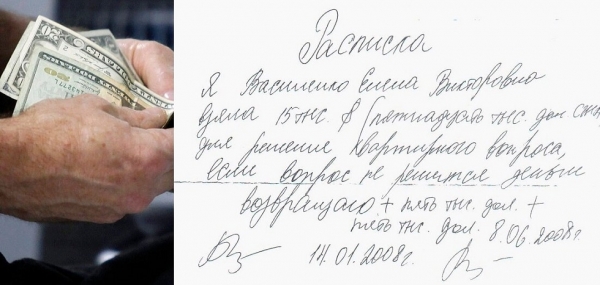 Расписка
Я Василенко Елена Викторовна
взяла 15 тыс. $ (пятнадцать тыс. дол. США)
для решения квартирного вопроса,
если вопрос не решится деньги
возвращаю + пять тыс. дол. +
пять тыс. дол. 8.06.2008г.
14.01.2008г.